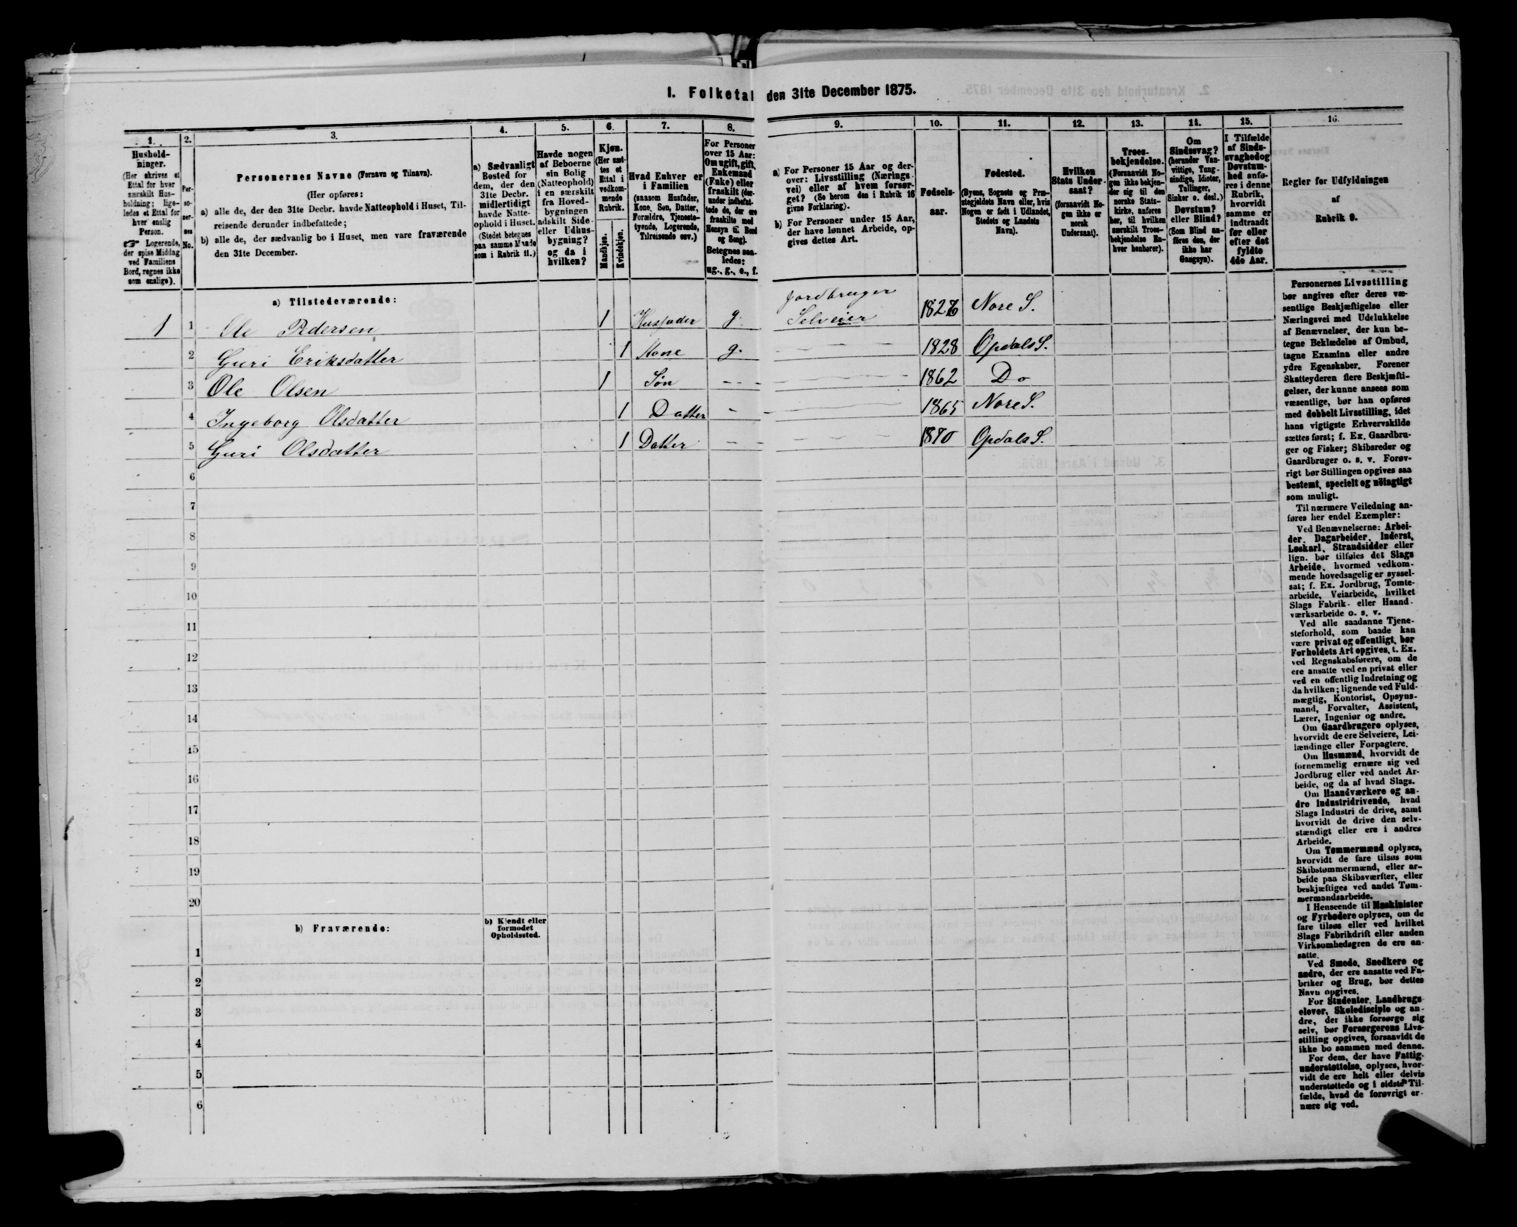 1. Folketal den 31te December 1875.
1.
Hushold-
ninger.
(Her skrives et
Ettal for hver
særskilt Hus-
holdning; lige-
ledes et Ettal for
hver enslig
Person.
☞ Logerende,
der spise Middag
ved Familiens
Bord, regnes ikke
som enslige).
2.
Per-
so-
ner-
nes
No.
3.
Personernes Navne (Fornavn og Tilnavn).
(Her opføres:
a) alle de, der den 31te Decbr. havde Natteophold i Huset, Til-
reisende derunder indbefattede;
b) alle de, der sædvanlig bo i Huset, men vare fraværende
den 31te December.
4.
a) Sædvanligt
Bosted for
dem, der den
31te Decbr.
midlertidigt
havde Natte-
ophold i Huset.
(Stedet betegnes
paa samme Maade
som i Rubrik 11.)
5.
Havde nogen
af Beboerne
sin Bolig
(Natteophold)
i en særskilt
fra Hoved-
bygningen
adskilt Side-
eller Udhus-
bygning?
og da i
hvilken?
6.
Kjøn.
(Her sæt-
tes et
Ettal i
vedkom-
mende
Rubrik.
Mandkjøn.
Kvindekjøn.
7.
Hvad Enhver er
i Familien
(saasom Husfader,
Kone, Søn, Datter,
Forældre, Tjeneste-
tyende, Logerende,
Tilreisende osv.)
8.
For Personer
over 15 Aar:
Om ugift, gift,
Enkemand
(Enke) eller
fraskilt (der-
under indbefat-
tede de, der ere
fraskilte med
Hensyn til Bord
og Seng).
Betegnes saa-
ledes:
ug., g., e., f.
9.
a) For Personer 15 Aar og der-
over: Livsstilling (Nærings-
vei) eller af hvem forsør-
get? (Se herom den i Rubrik 16
givne Forklaring).
b) For Personer under 15 Aar,
der have lønnet Arbeide, op-
gives dettes Art.
10.
Fødsels-
aar.
11.
Fødested.
(Byens, Sognets og Præ-
stegjeldets Navn eller, hvis
Nogen er født i Udlandet,
Stedets og Landets
Navn).
12.
Hvilken
Stats Under-
saat?
(forsaavidt No-
gen ikke er
norsk
Undersaat).
13.
Troes-
bekjendelse.
(Forsaavidt No-
gen ikke bekjen-
der sig til den
norske Stats-
kirke, anføres
her, til hvilken
særskilt Troes-
bekjendelse En-
hver henhører).
14.
Om
Sindssvag?
(herunder Van-
vittige, Tung-
sindige, Idioter,
Tullinger,
Sinker o. desl.)
Døvstum?
eller Blind?
(Som Blind an-
føres den, der
ikke har
Gangsyn).
15.
I Tilfælde
af Sinds-
svaghed og
Døvstum-
hed anfø-
res i denne
Rubrik,
hvorvidt
samme er
indtraadt
før eller
efter det
fyldte
4de Aar.
16.
Regler for Udfyldningen
af
Rubrik 9.
a) Tilstedeværende:
1 1 Ole Pedersen 1 Husfader g. Jordbruger
Selveier 1826 Nore S.
2 Guri Eriksdatter 1 Kone g. 1828 Opdals S.
3 Ole Olsen 1 Søn 1862 Do
4 Ingeborg Olsdatter 1 Datter 1865 Nore S.
5 Guri Olsdatter 1 Datter 1870 Opdals S.
6
7
8
9
10
11
12
13
14
15
16
17
18
19
20
b) Fraværende:
b) Kjendt eller
formodet
Opholdssted.
1
2
3
4
5
6
Personernes Livsstilling
bør angives efter deres væ-
sentlige Beskjæftigelse eller
Næringsvei med Udelukkelse
af Benævnelser, der kun be-
tegne Beklædelse af Ombud,
tagne Examina eller andre
ydre Egenskaber. Forener
Skatteyderen flere Beskjæfti-
gelser, der kunne ansees som
væsentlige, bør han opføres
med dobbelt Livsstilling, idet
hans vigtigste Erhvervskilde
sættes først; f. Ex. Gaardbru-
ger og Fisker; Skibsreder og
Gaardbruger o. s. v. Forøv-
rigt bør Stillingen opgives saa
bestemt, specielt og nøiagtigt
som muligt.
Til nærmere Veiledning an-
føres her endel Exempler:
Ved Benævnelserne: Arbei-
der, Dagarbeider, Inderst,
Løskarl, Strandsidder eller
lign. bør tilføies det Slags
Arbeide, hvormed vedkom-
mende hovedsagelig er syssel-
sat; f. Ex. Jordbrug, Tomte-
arbeide, Veiarbeide, hvilket
Slags Fabrik- eller Haand-
værksarbeide o. s. v.
Ved alle saadanne Tjene-
steforhold, som baade kan
være privat og offentligt, bør
Forholdets Art opgives, t. Ex.
ved Regnskabsførere, om de
ere ansatte ved en privat eller
ved en offentlig Indretning og
da hvilken; lignende ved Fuld-
mægtig, Kontorist, Opsyns-
mand, Forvalter, Assistent,
Lærer, Ingeniør og andre.
Om Gaardbrugere oplyses,
hvorvidt de ere Selveiere, Lei-
lændinge eller Forpagtere.
Om Husmænd, hvorvidt de
fornemmelig ernære sig ved
Jordbrug eller ved andet Ar-
beide, og da af hvad Slags.
Om Haandværkere og an-
dre Industridrivende, hvad
Slags Industri de drive, samt
hvorvidt de drive den selv-
stændigt eller ere i andres
Arbeide.
Om Tømmermænd oplyses,
hvorvidt de fare tilsøs som
Skibstømmermænd, eller ar-
beide paa Skibsværfter, eller
beskjæftiges ved andet Tøm-
mermandsarbeide.
I Henseende til Maskinister
og Fyrbødere oplyses, om de
fare tilsøs eller ved hvilket
Slags Fabrikdrift eller anden
Virksomhedsgren de ere an-
satte.
Ved Smede, Snedkere og
andre, der ere ansatte ved Fa-
briker og Brug, bør dettes
Navn opgives.
For Studenter, Landbrugs-
elever, Skoledisciple og an-
dre, der ikke forsørge sig
selv, bør Forsørgerens Livs-
stilling opgives, forsaavidt de
ikke bo sammen med denne.
For dem, der have Fattig-
understøttelse, oplyses, hvor-
vidt de ere helt eller delvis
understøttede og i sidste Til-
fælde, hvad de forøvrigt er-
nære sig ved.